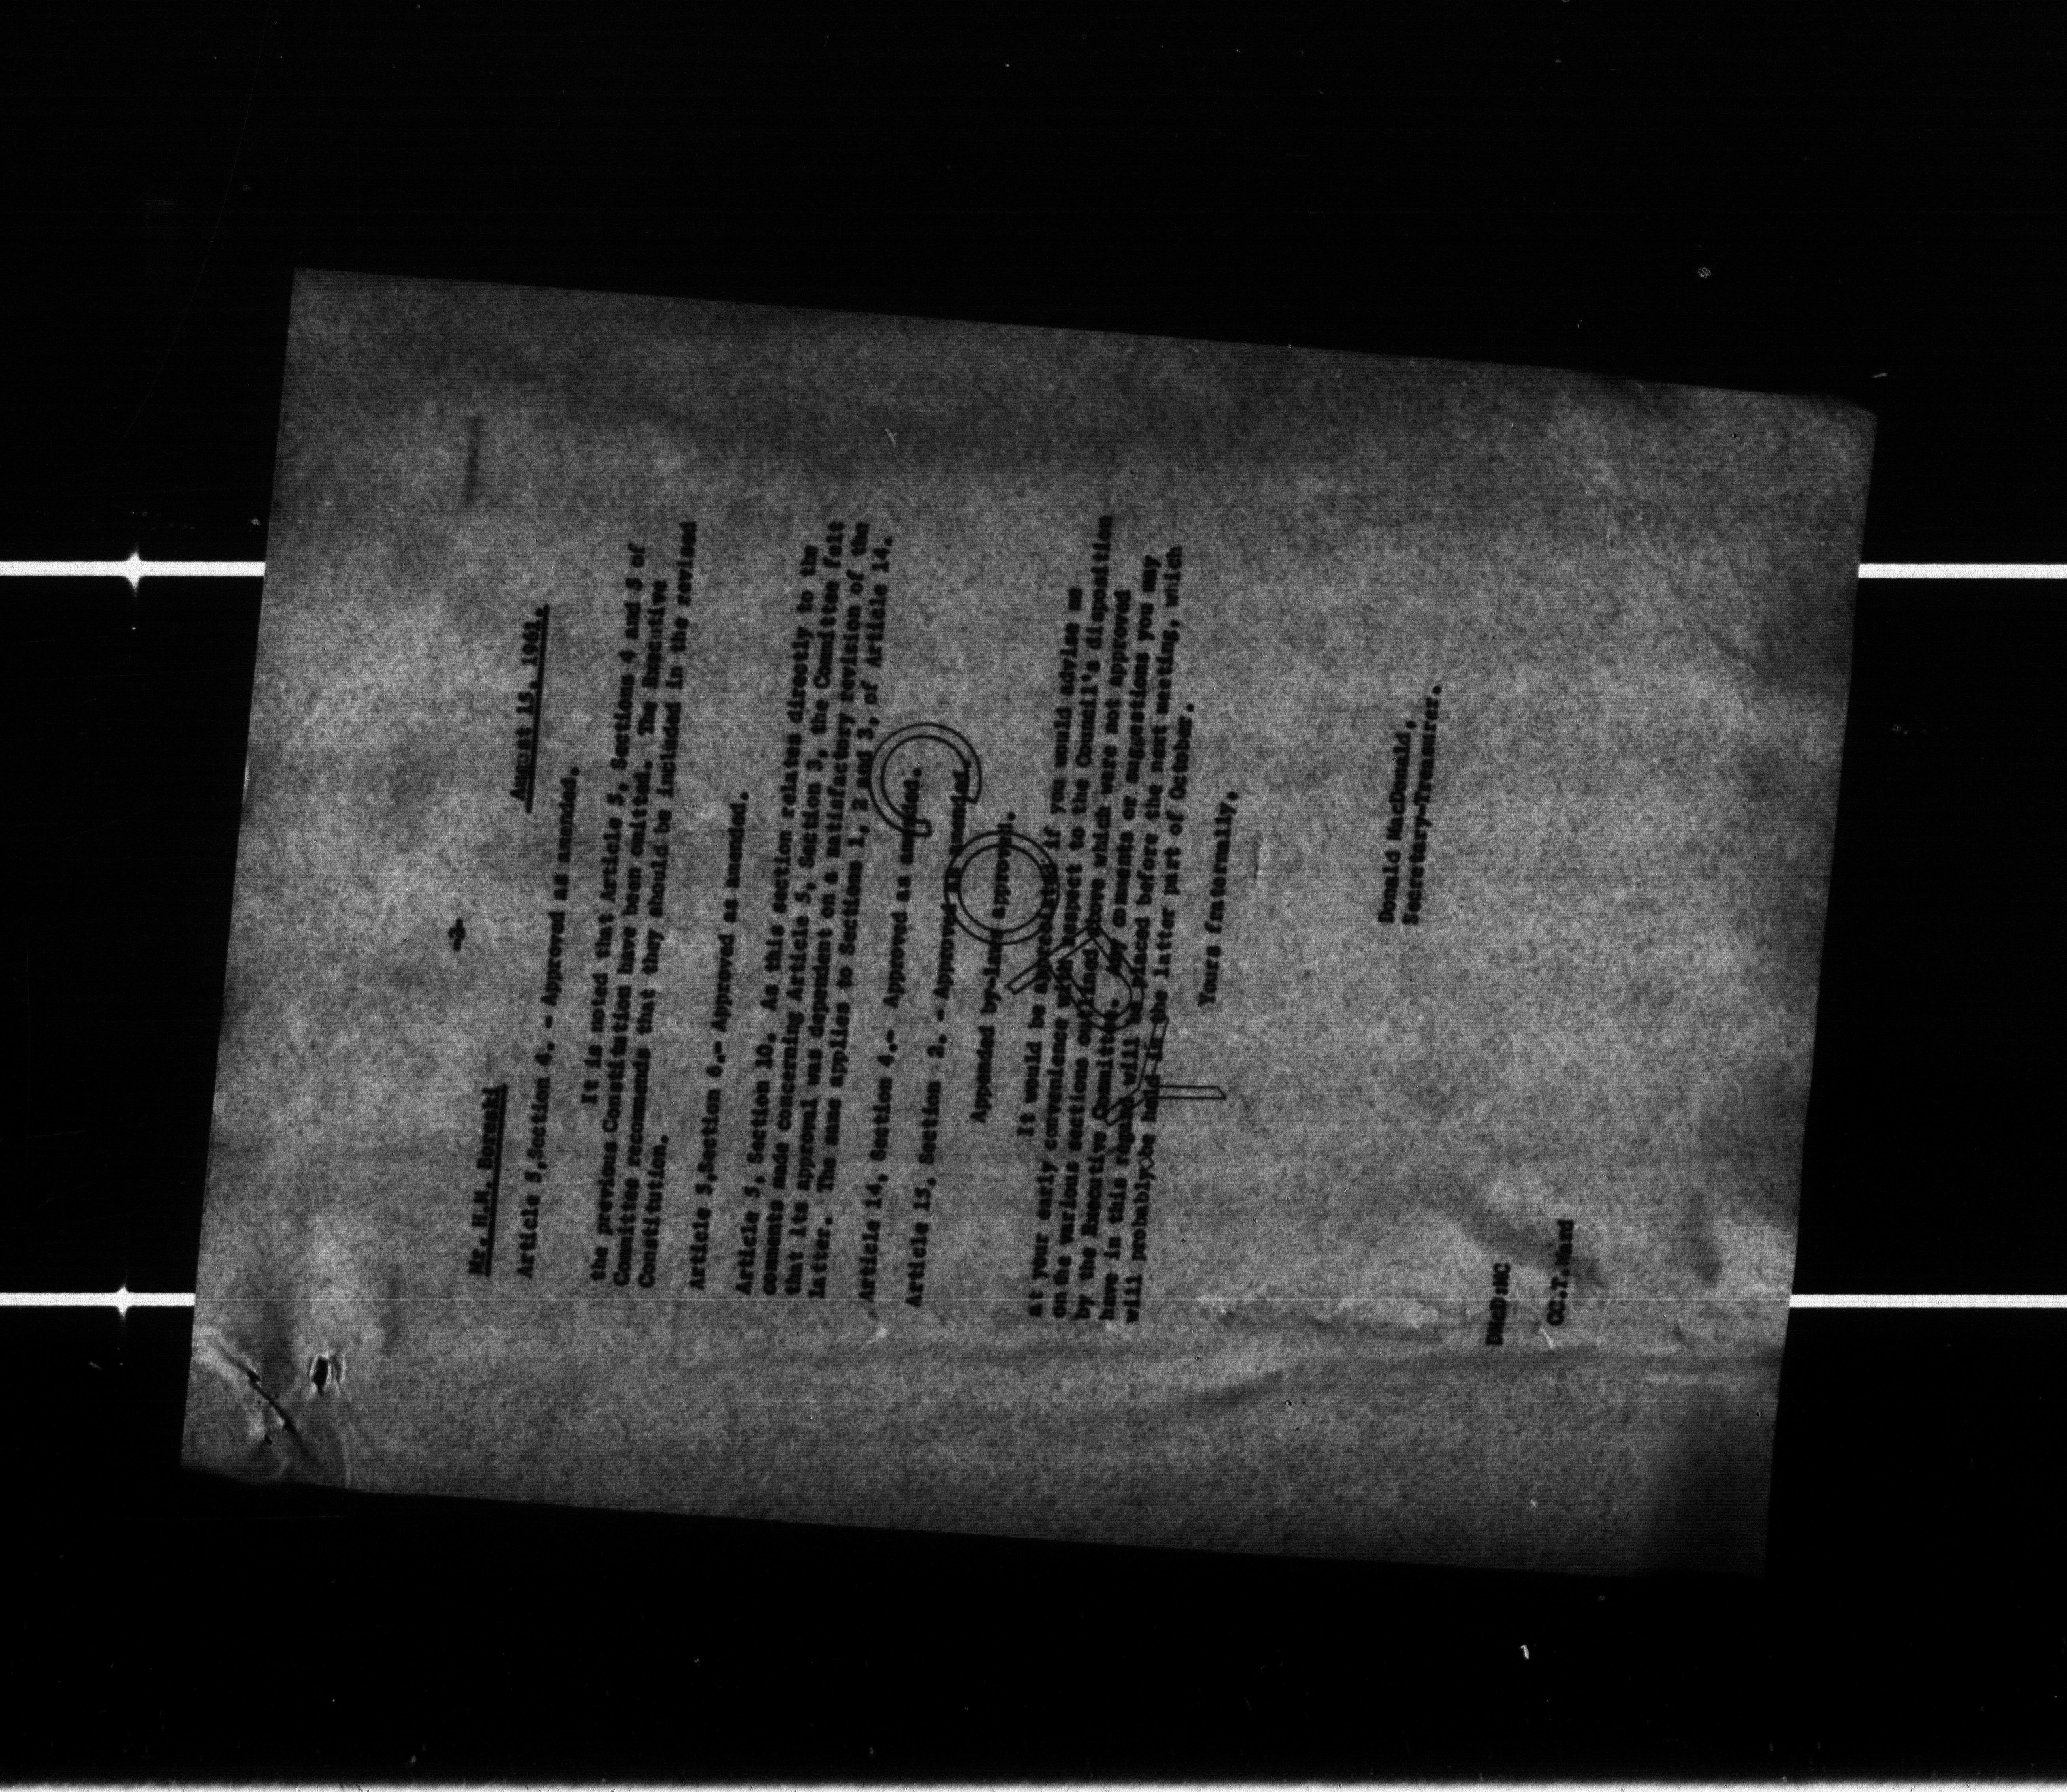 -2-
Mr. H.M. Barski
August 15, 1961.
Article 5, Section 4. - Approved as amended.
It is noted that Article 5, Sections 4 and 5 of
the previous Constitution have been omitted. The Executive
Committee recommends that they should be included in the revised
Constitution.
Article 5, Section 6.- Approved as amended.
Article 5, Section 10. As this section relates directly to the
comments made concerning Article 5, Section 3, the Committee felt
that its approval was dependent on a satisfactory revision of the
latter. The same applies to Sections 1, 2 and 3, of Article 14.
Article 14, Section 4.- Approved as amended.
Article 15, Section 2. - Approved as amended.
Appended by-laws approved.
It would be appreciated if you would advise us
at your early convenience with respect to the Council's disposition
on the various sections outlined above which were not approved
by the Executive Committee. Any comments or suggestions you may
have in this regard will be placed before the next meeting, which
will probably be held in the latter part of October.
Yours fraternally,
Donald MacDonald,
Secretary-Treasurer.
DMacD:MC
CC.T.Ward
COPY